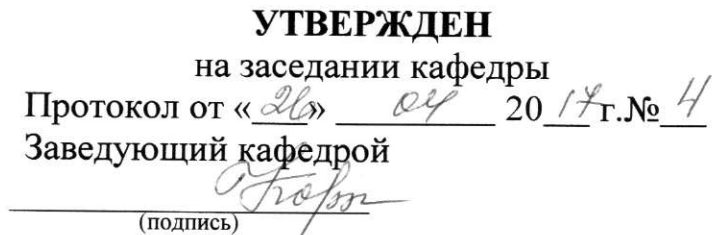 УТВЕРЖДЕН
на заседании кафедры
Протокол от «26» 04 2017г.№ 4
Заведующий кафедрой
(подпись)